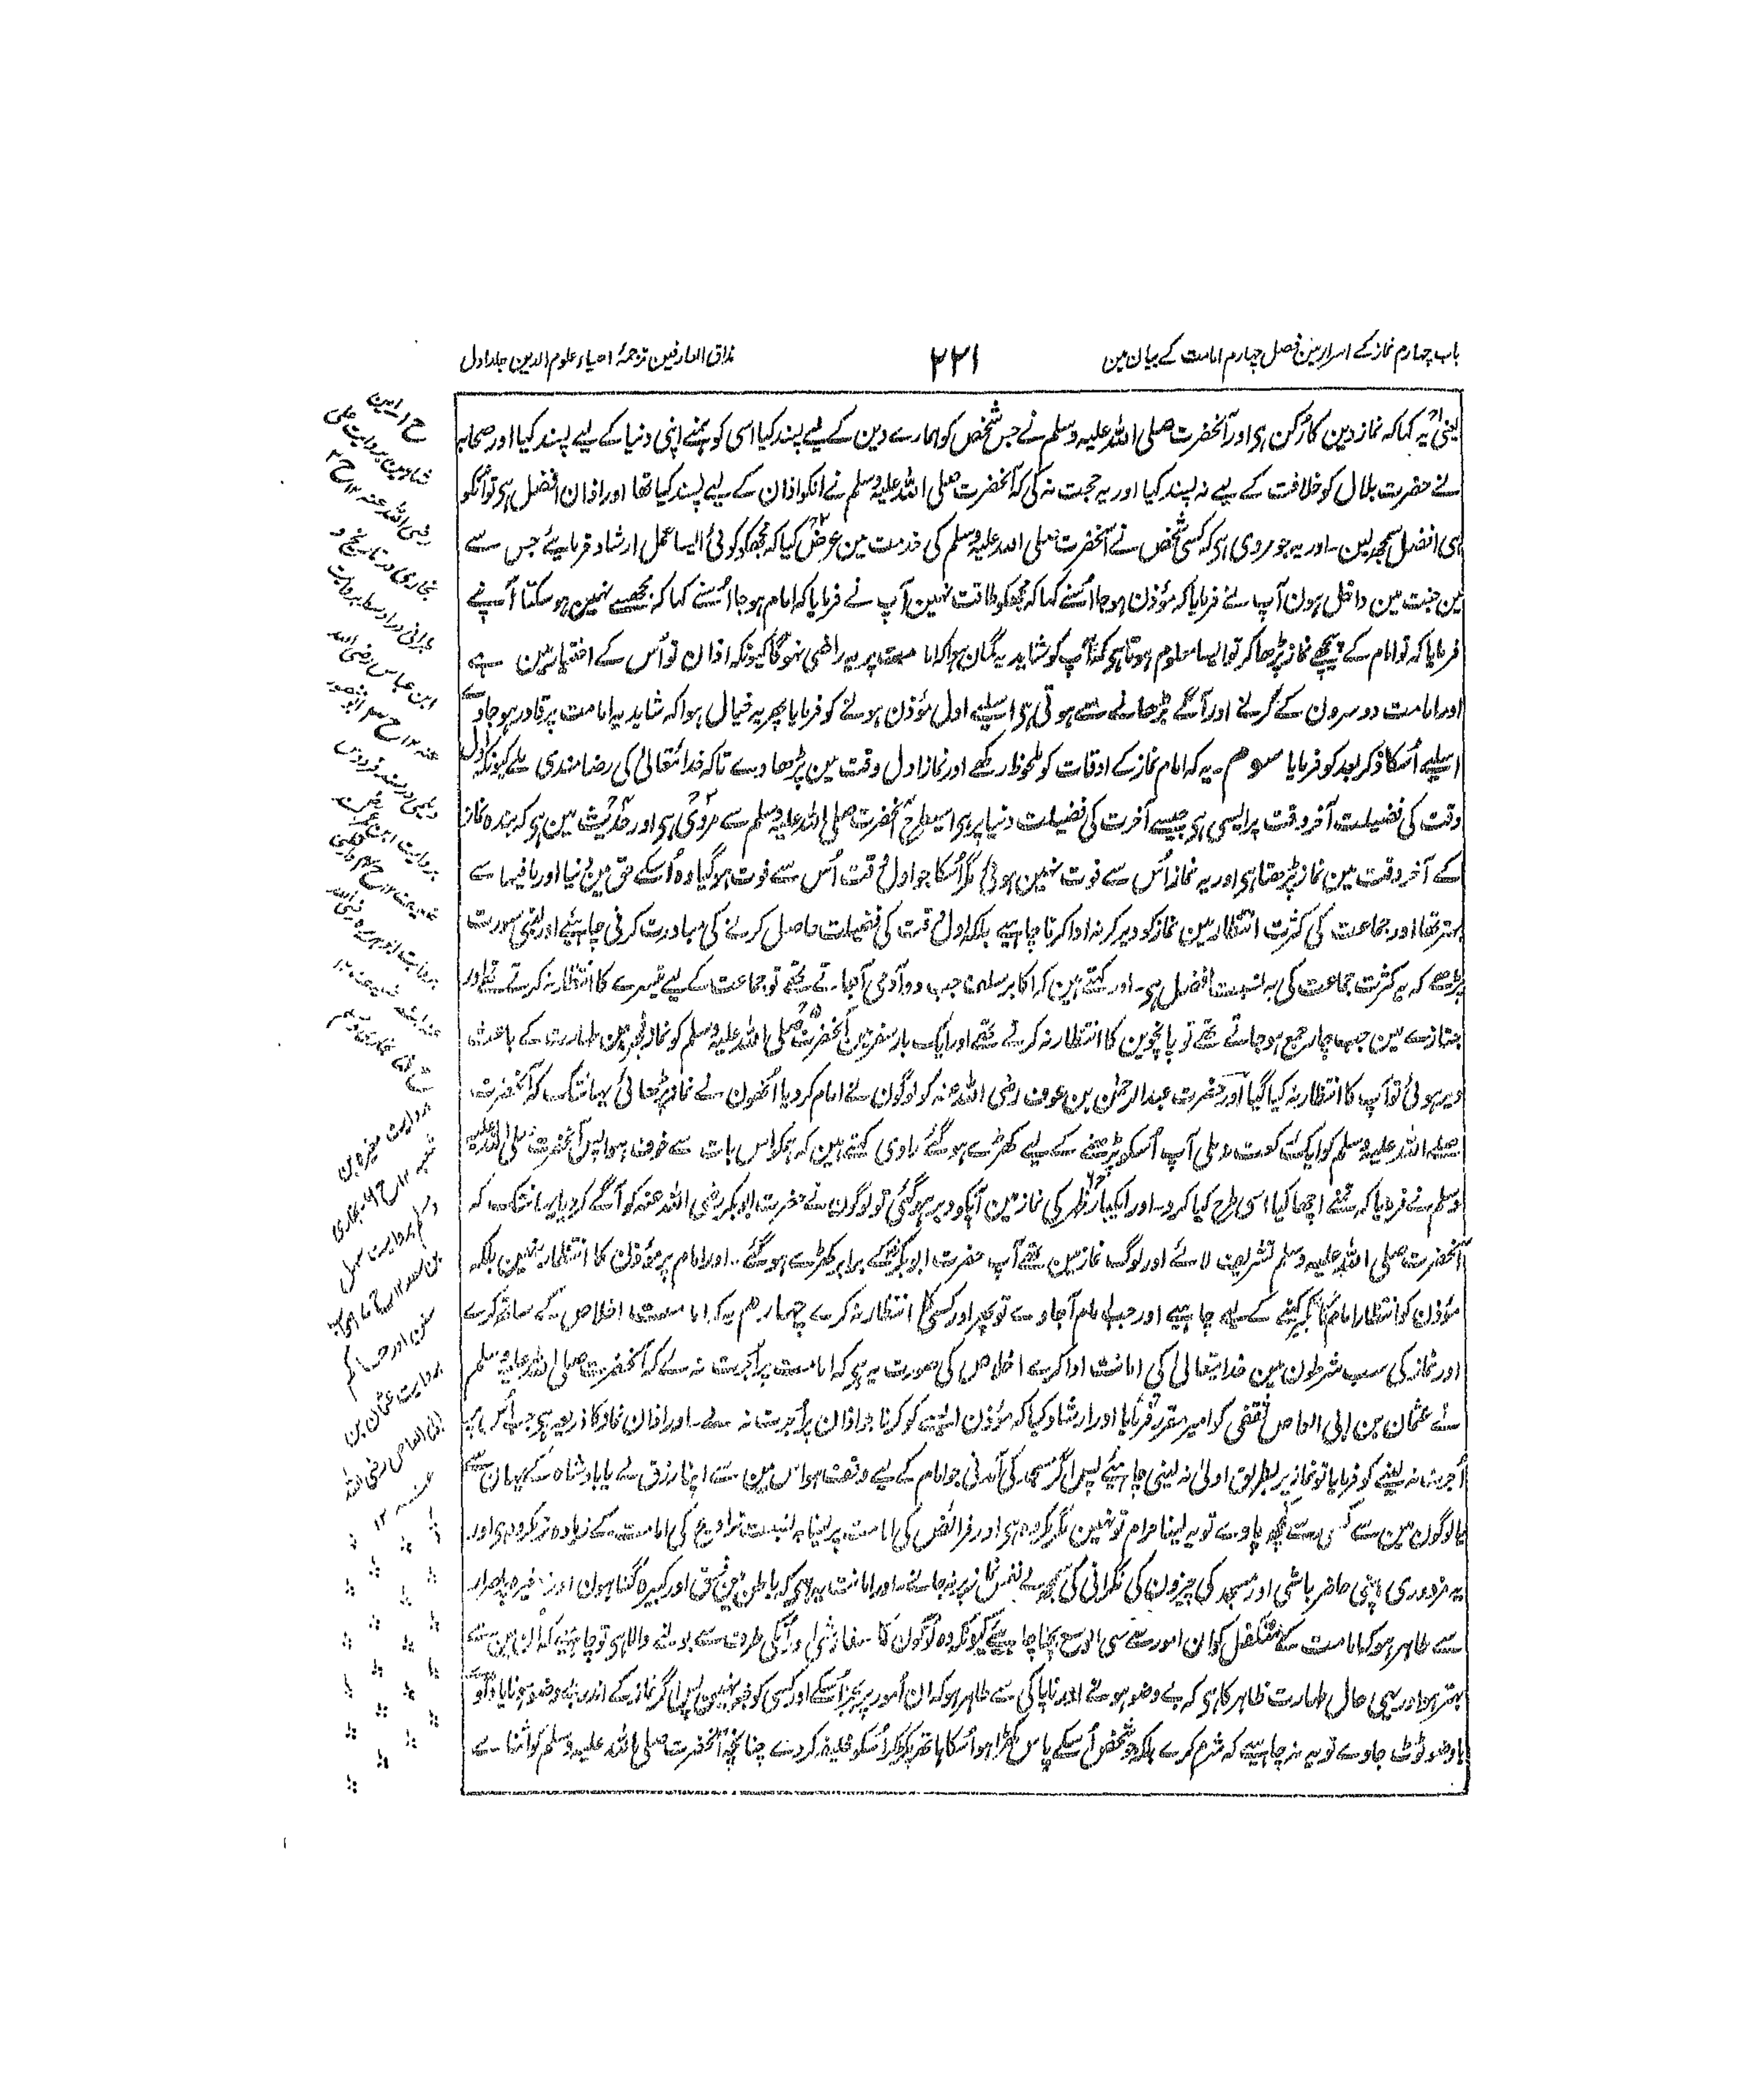 باب چہارم نماز کے اسرار مین فصل چہارم امامت کے بیان مین
۲۲۱
مذاق العارفین ترجمۂ احیاء علوم الدین جلد اول
یعنی یہ کہا کہ نماز دین کا رکن ہی اور آنحضرت صلی اللہ علیہ وسلم نے جس شخص کو ہمارے دین کے لیے پسند کیا اسی کو ہمنے اپنی دنیا کے لیے پسند کیا اور صحابہ
نے حضرت بلال کو خلافت کے لیے نہ پسند کیا اور یہ حجت نہ کی کہ آنحضرت صلی اللہ علیہ وسلم نے انکو اذان کے لیے پسند کیا تھا اور اذان افضل ہی تو انکو
ہی افضل سمجھ لین۔ اور یہ جو مروی ہی کہ کسی شخص نے آنحضرت صلی اللہ علیہ وسلم کی خدمت مین عرض کیا کہ مجھکو کوئی ایسا عمل ارشاد فرمایئے جس سے
مین جنت مین داخل ہون آپ نے فرمایا کہ مؤذن ہو جا اُسنے کہا کہ مجھکو طاقت نہین آپ نے فرمایا کہ امام ہو جا اُسنے کہا کہ مجھسے نہین ہو سکتا آپ نے
فرمایا کہ تو امام کے پیچھے نماز پڑھا کر تو ایسا معلوم ہوتا ہی کہ آپ کو شاید یہ گمان ہوا کہ امامت پر یہ راضی نہو گا کیونکہ اذان تو اُس کے اختیار مین ہے
اور امامت دوسرون کے کرنے اور آگے بڑھانے سے ہوتی ہی اسلیے اول مؤذن ہونے کو فرمایا پھر یہ خیال ہوا کہ شاید یہ امامت پر قادر ہو جاوے
اسلیے اُسکا ذکر بعد کو فرمایا سوم۔ یہ کہ امام نماز کے اوقات کو ملحوظ رکھے اور نماز اول وقت مین پڑھا دے تاکہ خدا تعالیٰ کی رضامندی ملے کیونکہ اول
وقت کی فضیلت آخر وقت پر ایسی ہی جیسے آخرت کی فضیلت دنیا پر ہی اسیطرح آنحضرت صلی اللہ علیہ وسلم سے مروی ہی اور حدیث مین ہی کہ بندہ نماز
کے آخر وقت مین نماز پڑھتا ہی اور یہ نماز اُس سے فوت نہین ہوئی مگر اُسکا جو اول وقت اُس سے فوت ہو گیا وہ اُسکے حق مین دنیا اور ما فیہا سے
بہتر تھا اور جماعت کی کثرت انتظار مین نماز کو دیر کر نہ ادا کرنا چاہیے بلکہ اول وقت کی فضیلت حاصل کرنے کی مبادرت کرنی چاہیئے اور لمبی سورت
پڑھے کہ یہ کثرت جماعت کی بہ نسبت افضل ہی۔ اور کہتے ہین کہ اکابر سلف جب دو آدمی آجاتے تھے تو جماعت کے لیے تیسرے کا انتظار نہ کرتے تھے اور
جنازے مین جب چار جمع ہو جاتے تھے تو پانچوین کا انتظار نہ کرتے تھے اور ایک بار سفر مین آنحضرت صلی اللہ علیہ وسلم کو نماز فجر مین طہارت کے باعث
دیر ہوئی تو آپ کا انتظار نہ کیا گیا اور حضرت عبدالرحمٰن بن عوف رضی اللہ عنہ کو لوگون نے امام کر دیا اُنھون نے نماز پڑھائی یہانتک کہ آنحضرت
صلے اللہ علیہ وسلم کو ایک رکعت نہ ملی آپ اُسکو پڑھنے کے لیے کھڑے ہو گئے راوی کہتے ہین کہ ہمکو اس بات سے خوف ہوا پس آنحضرت صلی اللہ علیہ
وسلم نے فرمایا کہ تمنے اچھا کیا اسی طرح کیا کرو۔ اور ایکبار ظہر کی نماز مین آپکو دیر ہو گئی تو لوگون نے حضرت ابوبکر رضی اللہ عنہ کو آگے کر دیا یہانتک کہ
آنحضرت صلی اللہ علیہ وسلم تشریف لائے اور لوگ نماز مین تھے آپ حضرت ابوبکر کے برابر کھڑے ہو گئے۔ اور امام پر مؤذن کا انتظار نہین بلکہ
مؤذن کو انتظار امام کا تکبیر کہنے کے لیے چاہیے اور جب امام آجاوے تو پھر اور کسی کا انتظار نہ کرے چہارم یہ کہ امامت اخلاص کے ساتھ کرے
اور نماز کی سب شرطون مین خدا تعالیٰ کی امانت ادا کرے اخلاص کی صورت یہ ہی کہ امامت پر اُجرت نہ لے کہ آنحضرت صلی اللہ علیہ وسلم
نے عثمان بن ابی العاص ثقفی کو امیر مقرر فرمایا اور ارشاد کیا کہ مؤذن ایسے کو کرنا جو اذان پر اُجرت نہ لے۔ اور اذان نماز کا ذریعہ ہی جب اُس پر
اُجرت نہ لینے کو فرمایا تو نماز پر بطریق اولیٰ نہ لینی چاہیئے پس اگر مسجد کی آمدنی جو امام کے لیے وقف ہو اُس مین سے اپنا رزق لے یا بادشاہ کے یہان سے
یا لوگون مین سے کسی سے کچھ پاوے تو یہ لینا حرام تو نہین مگر مکروہ ہی اور فرائض کی امامت پر لینا بہ نسبت تراویح کی امامت کے زیادہ تر مکروہ ہی اور
یہ مزدوری اپنی حاضر باشی اور مسجد کی چیزون کی نگرانی کی سمجھے نفس نماز پر نہ جانے۔ اور امانت یہ ہی کہ باطن مین فسق اور کبیرہ گناہون اور صغیرہ پر اصرار
سے طاہر ہو کہ امامت کے متکفل کو ان امور سے حتی الوسع بچنا چاہیئے کیونکہ وہ لوگون کا سفارشی اور اُنکی طرف سے بولنے والا ہی تو چاہیئے کہ اُن مین سے
بہتر ہو اور یہی حال طہارت ظاہر کا ہی کہ بے وضو ہونے اور ناپاکی سے طاہر ہو کہ ان اُمور پر بجز اُسکے اور کسی کو خبر نہین پس اگر نماز کے اندر بے وضو ہونا یاد آوے
یا وضو ٹوٹ جاوے تو یہ نہ چاہیے کہ شرم کرے بلکہ جو شخص اُسکے پاس کھڑا ہو اُسکا ہاتھ پکڑ کر اُسکو خلیفہ کر دے چنانچہ آنحضرت صلی اللہ علیہ وسلم کو اثنائے
شاہین بروایت علی
رضی اللہ عنہ ۱۲ ح ۲
بخاری در تاریخ و
طبرانی در اوسط بروایت
ابن عباس رضی اللہ
عنہ ۱۲ ح ۳ ابو منصور
دیلمی در مسند فردوس
بروایت ابن عمر
بروایت ابو ہریرہ رضی اللہ
بروایت مغیرہ بن
شعبہ ۱۲ ح ۶ بخاری
و مسلم بروایت سہل
بن سعد ۱۲ ح
سنن اور حاکم
بروایت عثمان بن
ابی العاص رضی اللہ
عنہ ۱۲